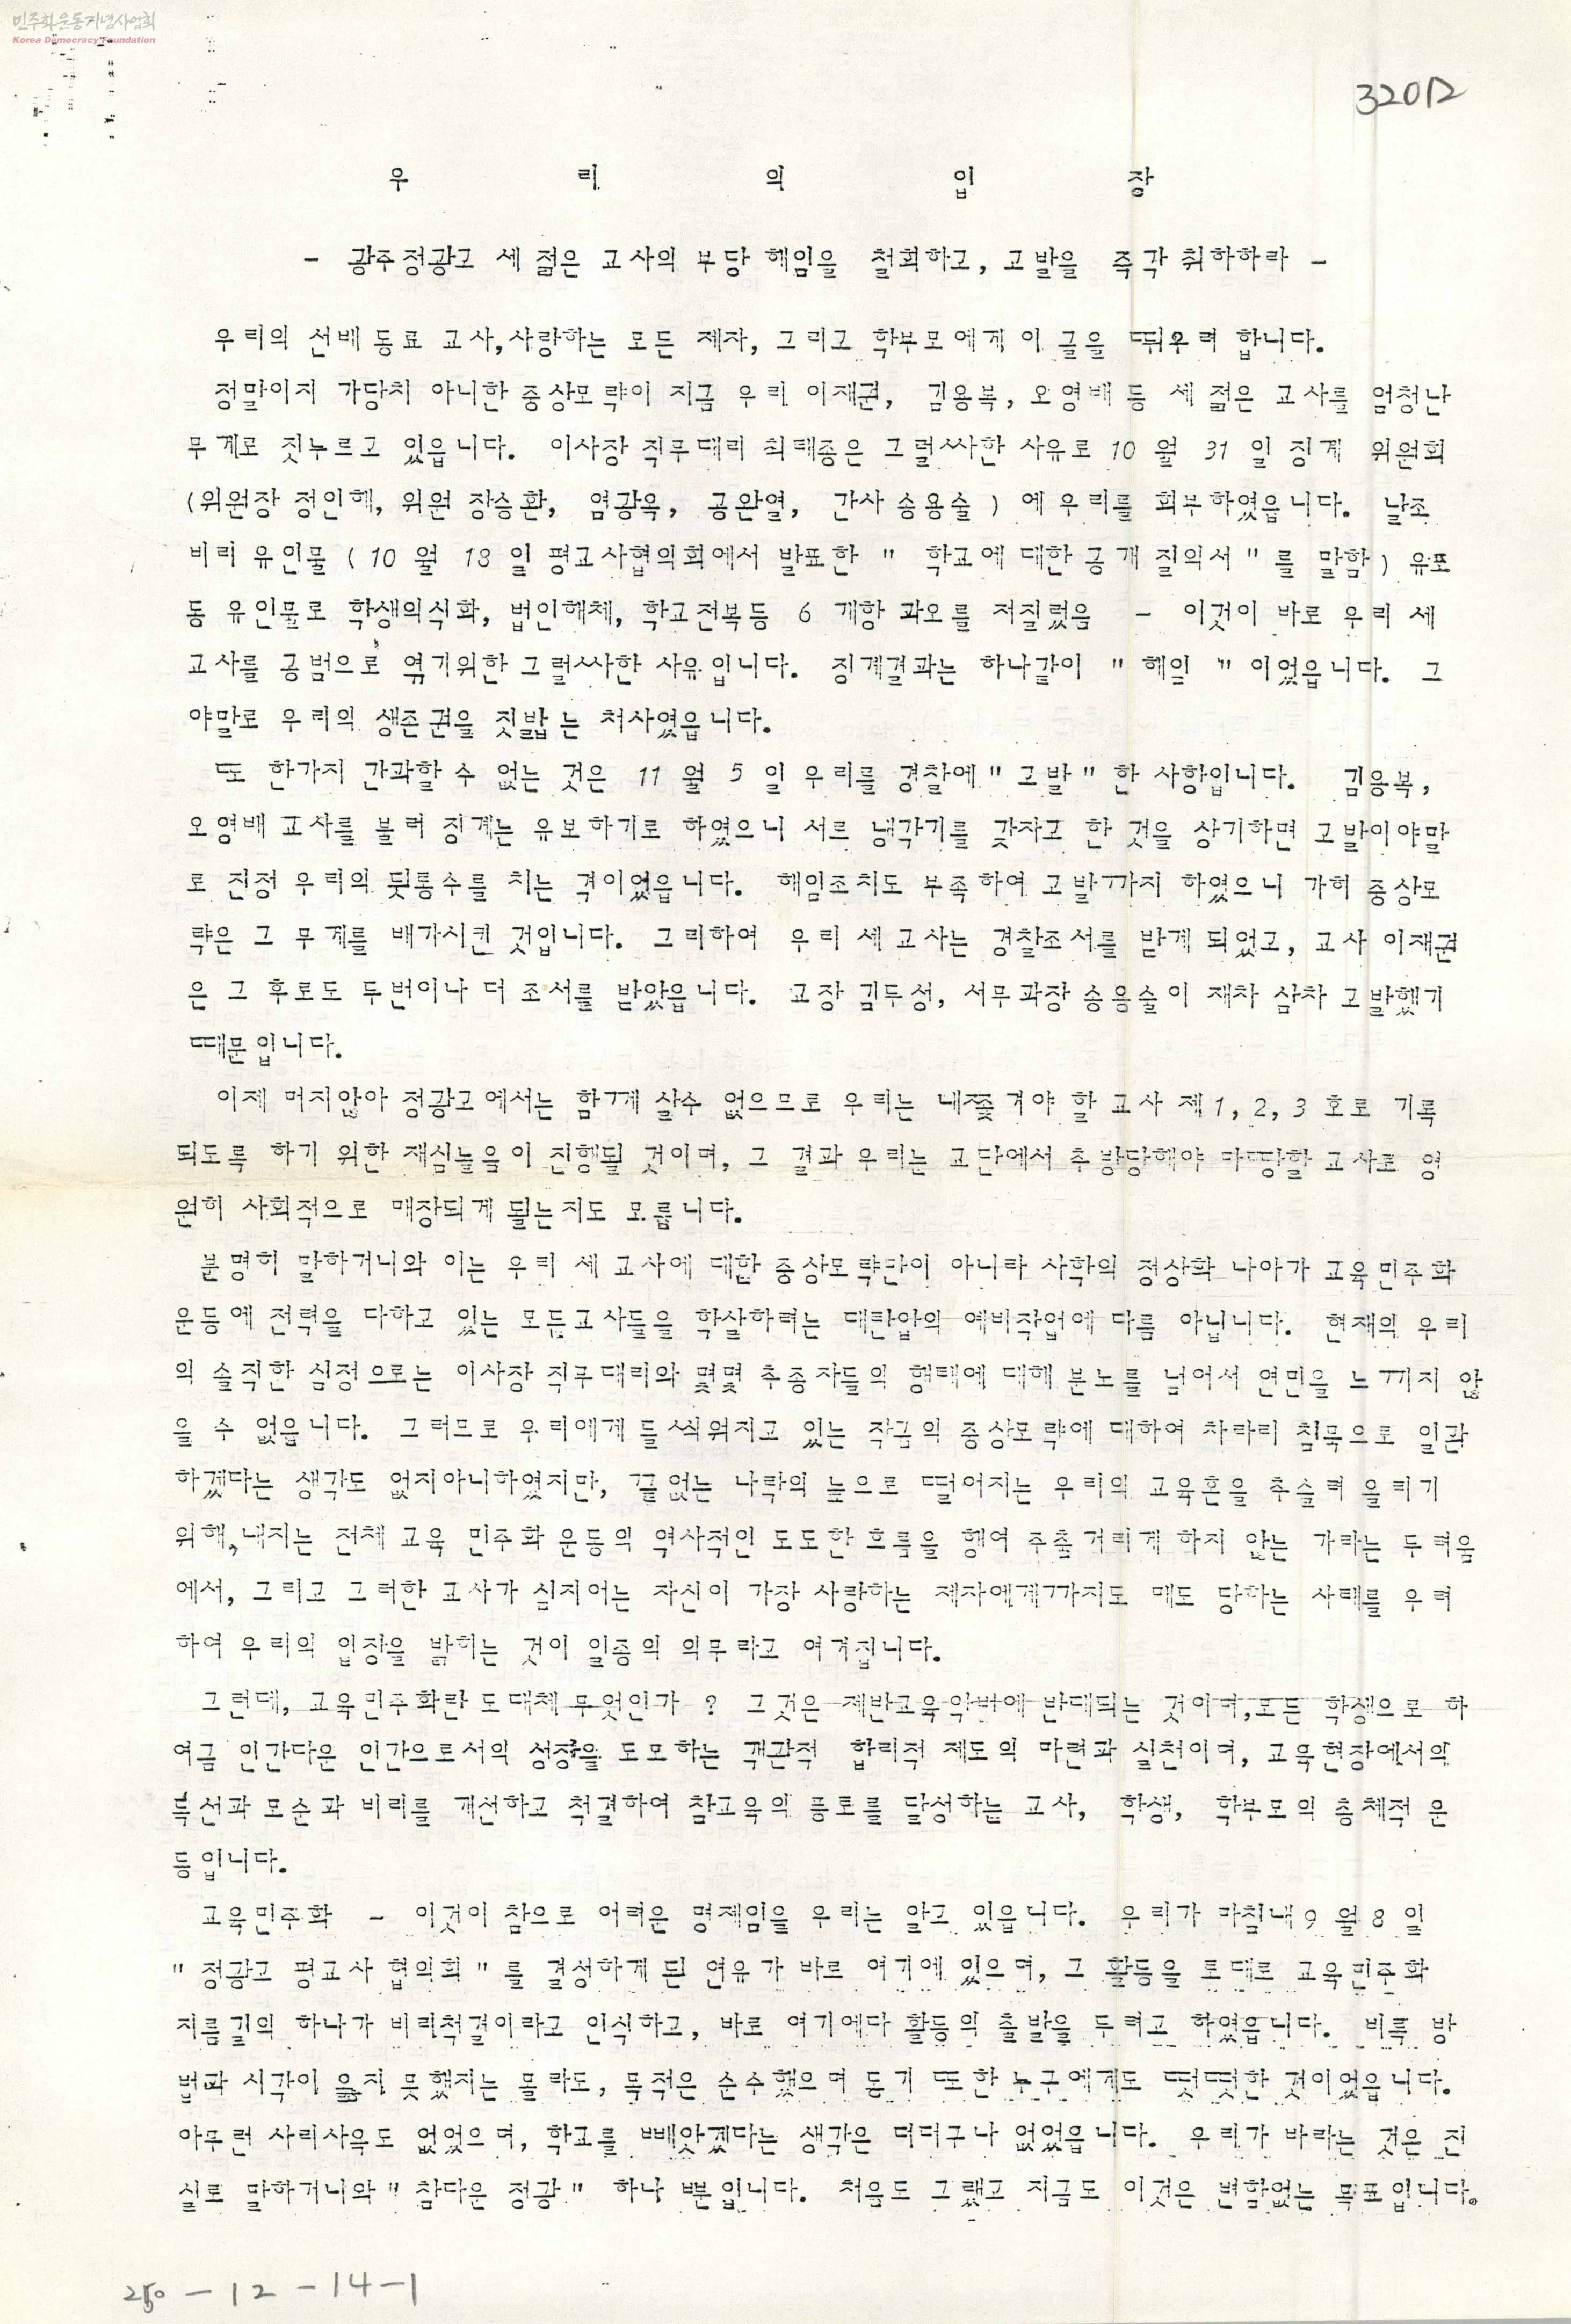 민주화운동기념사업회
Korea Democracy Foundation
우 리 의 입 장
- 광주정광고 세 젊은 교사의 부당 해임을 철회하고, 고발을 즉각 취하하라 -
우리의 선배 동료 교사, 사랑하는 모든 제자, 그리고 학부모에게 이 글을 띄우려 합니다.
정말이지 가당치 아니한 중상모략이 지금 우리 이재권, 김용복, 오영배 등 세 젊은 교사를 엄청난
무게로 짓누르고 있읍니다. 이사장 직무대리 최태종은 그럴싸한 사유로 10 월 31 일 징계 위원회
(위원장 정인해, 위원 장승환, 염광옥, 공완열, 간사 송용술 ) 에 우리를 회부하였읍니다. 날조
비리 유인물 ( 10 월 18 일 평교사협의회에서 발표한 " 학교에 대한 공개 질의서 " 를 말함 ) 유포
등 유인물로 학생의식화, 법인해체, 학교전복등 6 개항 과오를 저질렀음 - 이것이 바로 우리 세
교사를 공범으로 엮기위한 그럴싸한 사유입니다. 징계결과는 하나같이 " 해임 " 이었읍니다. 그
야말로 우리의 생존권을 짓밟는 처사였읍니다.
또 한가지 간과할 수 없는 것은 11 월 5 일 우리를 경찰에 " 고발 " 한 사항입니다. 김용복,
오영배 교사를 불러 징계는 유보하기로 하였으니 서로 냉각기를 갖자고 한 것을 상기하면 고발이야말
로 진정 우리의 뒷통수를 치는 격이었읍니다. 해임조치도 부족하여 고발까지 하였으니 가히 중상모
략은 그 무게를 배가시킨 것입니다. 그리하여 우리 세 교사는 경찰조서를 받게 되었고, 교사 이재권
은 그 후로도 두번이나 더 조서를 받았읍니다. 교장 김두성, 서무과장 송용술이 재차 삼차 고발했기
때문입니다.
이제 머지않아 정광고에서는 함께 살수 없으므로 우리는 내쫓겨야 할 교사 제 1, 2, 3 호로 기록
되도록 하기 위한 재심놀음이 진행될 것이며, 그 결과 우리는 교단에서 추방당해야 마땅할 교사로 영
원히 사회적으로 매장되게 될는지도 모릅니다.
분명히 말하거니와 이는 우리 세 교사에 대한 중상모략만이 아니라 사학의 정상화 나아가 교육민주화
운동에 전력을 다하고 있는 모든교사들을 학살하려는 대탄압의 예비작업에 다름 아닙니다. 현재의 우리
의 솔직한 심정으로는 이사장 직무대리와 몇몇 추종자들의 행태에 대해 분노를 넘어서 연민을 느끼지 않
을 수 없읍니다. 그러므로 우리에게 들씌워지고 있는 작금의 중상모략에 대하여 차라리 침묵으로 일관
하겠다는 생각도 없지아니하였지만, 끝없는 나락의 늪으로 떨어지는 우리의 교육혼을 추슬려 올리기
위해, 내지는 전체 교육 민주화 운동의 역사적인 도도한 흐름을 행여 주춤거리게 하지 않는 가라는 두려움
에서, 그리고 그러한 교사가 심지어는 자신이 가장 사랑하는 제자에게까지도 매도 당하는 사태를 우려
하여 우리의 입장을 밝히는 것이 일종의 의무라고 여겨집니다.
그런데, 교육민주화란 도대체 무엇인가 ? 그것은 제반교육악법에 반대되는 것이며, 모든 학생으로 하
여금 인간다운 인간으로서의 성장을 도모하는 객관적 합리적 제도의 마련과 실천이며, 교육현장에서의
독선과 모순과 비리를 개선하고 척결하여 참교육의 풍토를 달성하는 교사, 학생, 학부모의 총체적 운
동입니다.
교육민주화 - 이것이 참으로 어려운 명제임을 우리는 알고 있읍니다. 우리가 마침내 9 월 8 일
" 정광고 평교사 협의회 " 를 결성하게 된 연유가 바로 여기에 있으며, 그 활동을 토대로 교육민주화
지름길의 하나가 비리척결이라고 인식하고, 바로 여기에다 활동의 출발을 두려고 하였읍니다. 비록 방
법과 시각이 옳지 못했지는 몰라도, 목적은 순수했으며 동기 또한 누구에게도 떳떳한 것이었읍니다.
아무런 사리사욕도 없었으며, 학교를 빼앗겠다는 생각은 더더구나 없었읍니다. 우리가 바라는 것은 진
실로 말하거니와 " 참다운 정광 " 하나 뿐입니다. 처음도 그랬고 지금도 이것은 변함없는 목표입니다.
250 - 12 - 14 - 1